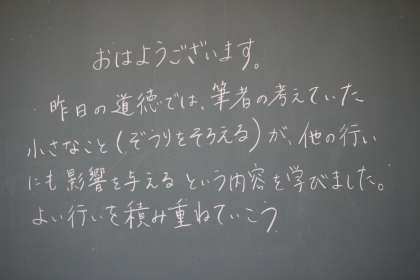 おはようございます。
昨日の道徳では、筆者の考えていた
小さなこと(ぞうりをそろえる)が、他の行い
にも影響を与えるという内容を学びました。
よい行いを積み重ねていこう